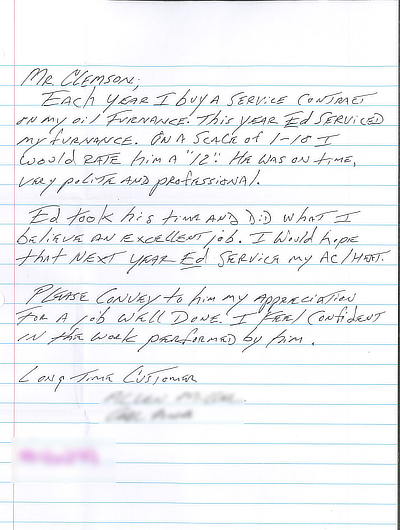 Mr Clemson;
Each year I buy a service contract
on my oil furnance. This year Ed serviced
my furnance. On a scale of 1-10 I
would rate him a "12". He was on time,
very polite and professional.
Ed took his time and did what I
believe an excellent job. I would hope
that next year Ed service my AC/Heat.
Please convey to him my appreciation
for a job well done. I feel confident
in the work performed by him.
Long Time Customer